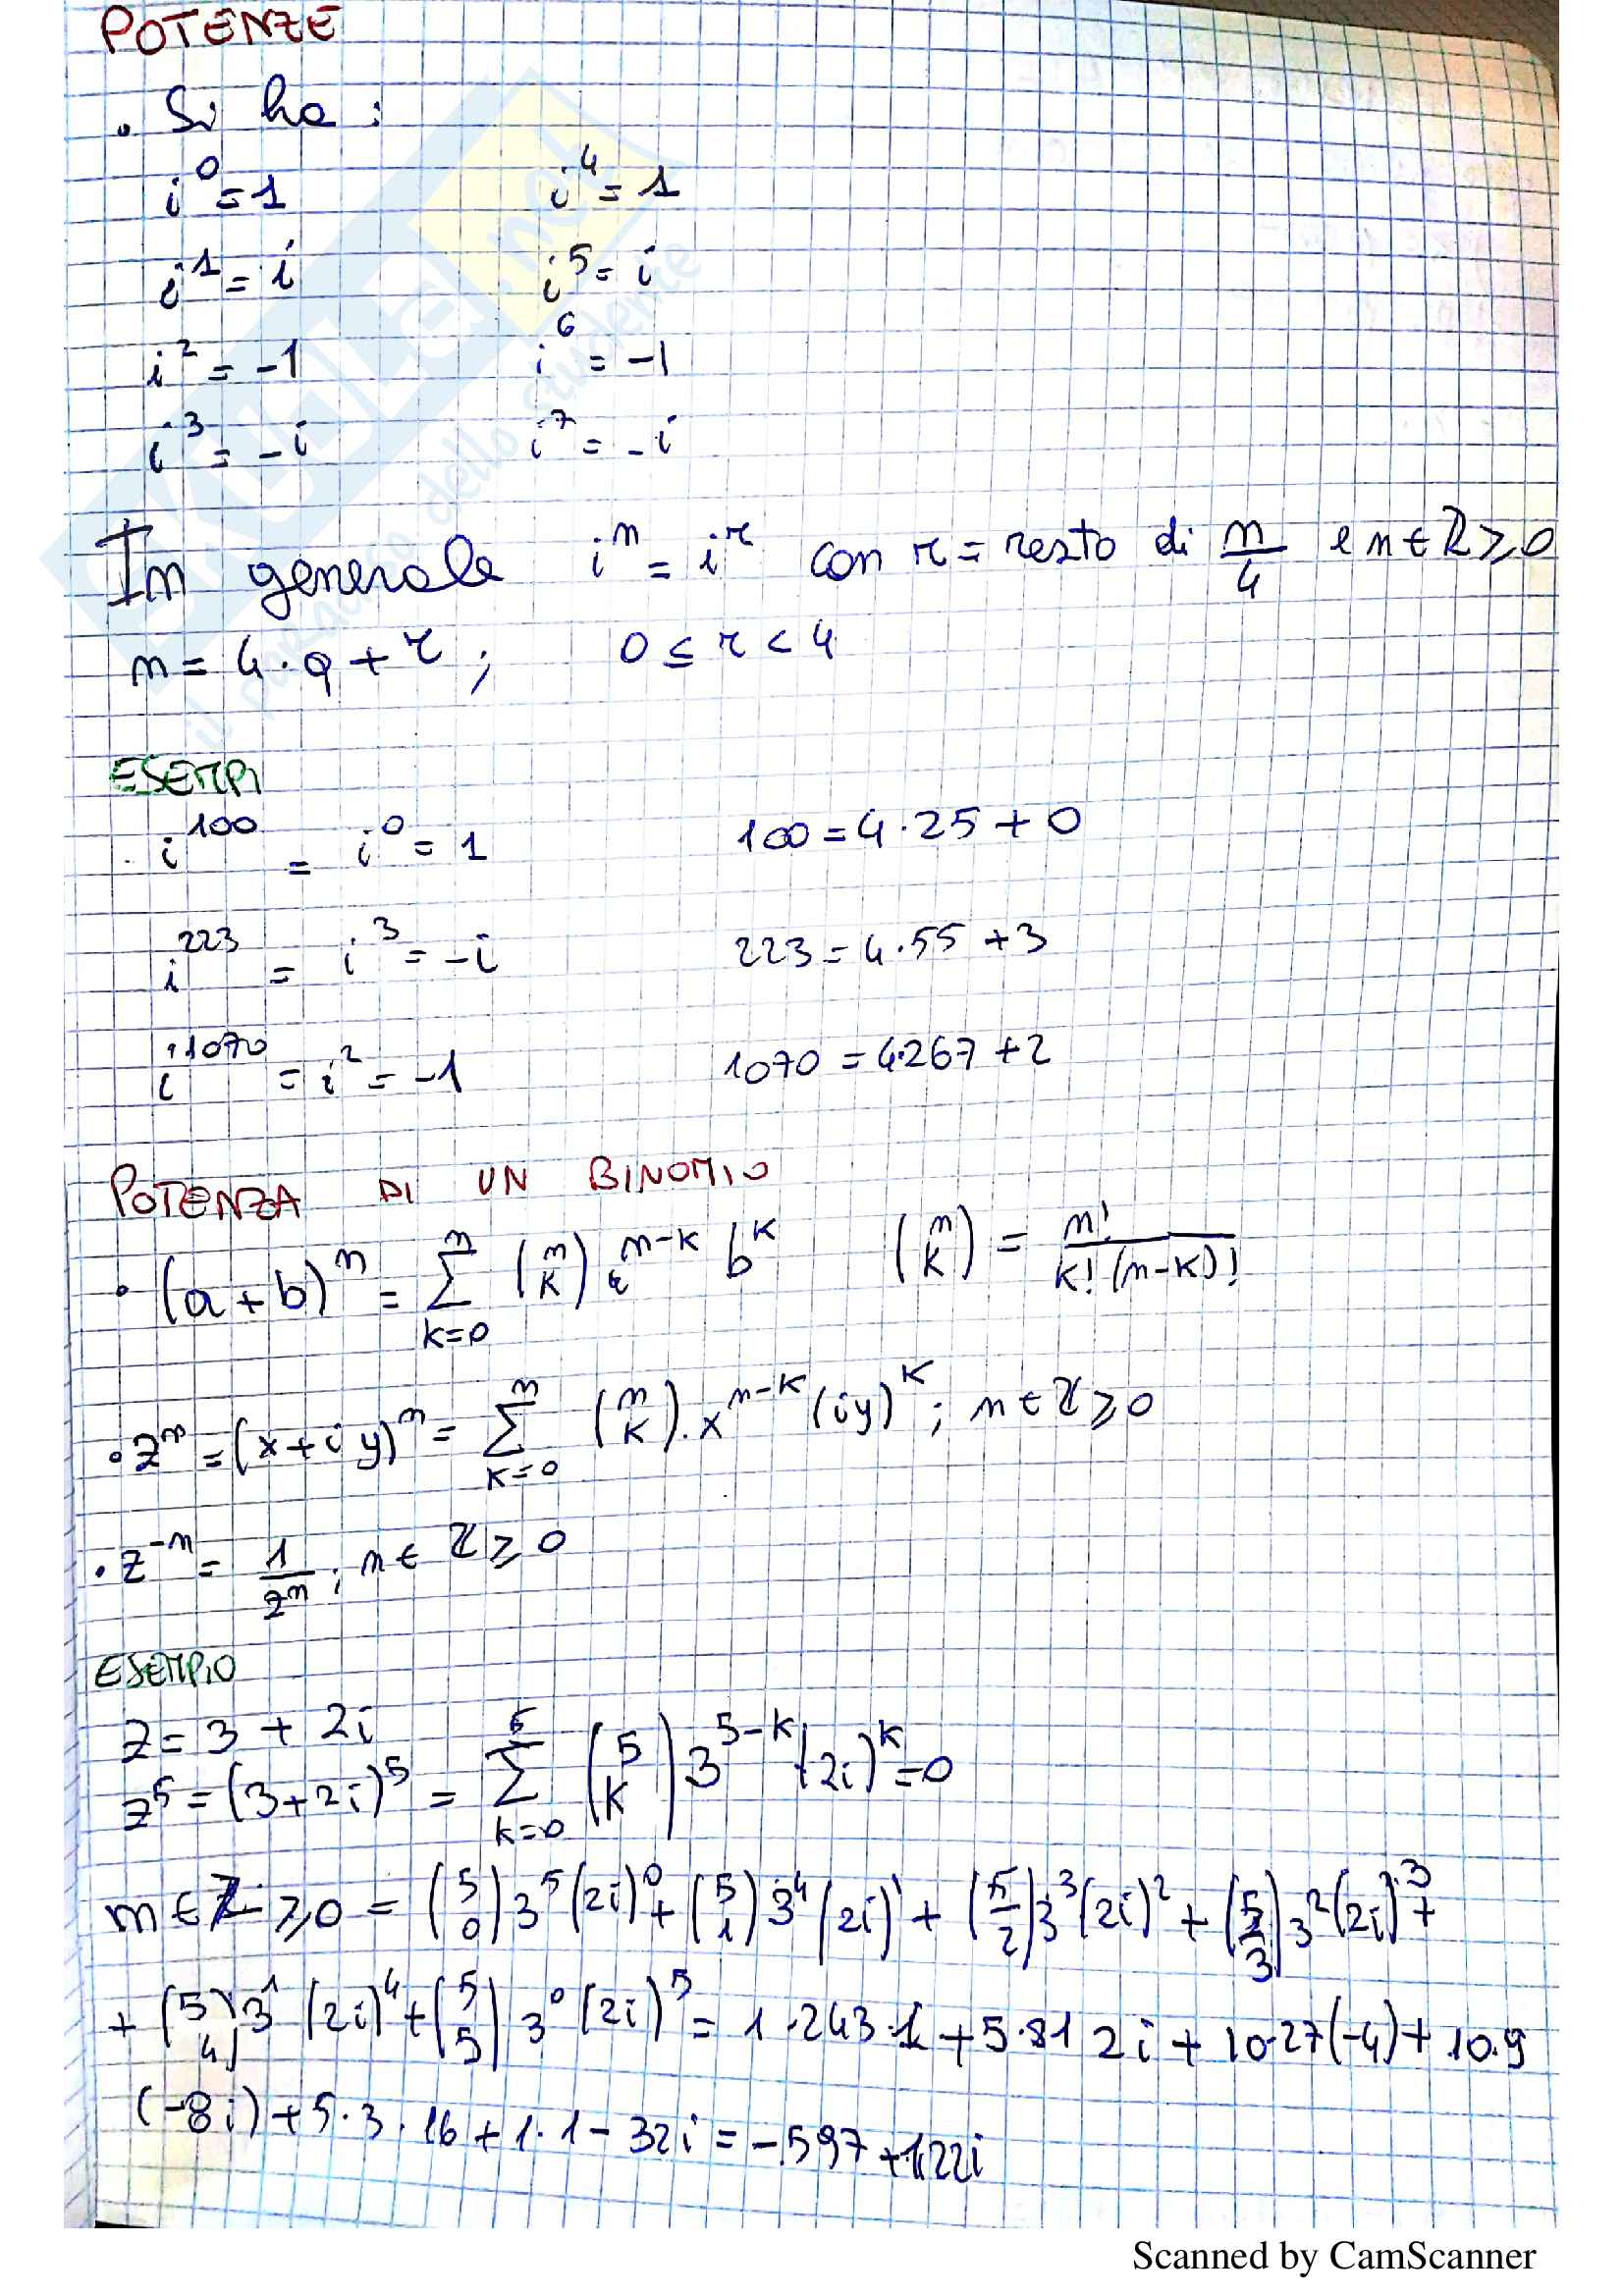 POTENZE
• Si ha:
i⁰ = 1    i⁴ = 1
i¹ = i    i⁵ = i
i² = -1    i⁶ = -1
i³ = -i    i⁷ = -i
In generale iⁿ = iʳ con r = resto di n/4 e n ∈ ℤ ≥ 0
n = 4 · q + r ;    0 ≤ r < 4
ESEMPI
i¹⁰⁰ = i⁰ = 1    100 = 4 · 25 + 0
i²²³ = i³ = -i    223 = 4 · 55 + 3
i¹⁰⁷⁰ = i² = -1    1070 = 4·267 + 2
POTENZA DI UN BINOMIO
• (a+b)ⁿ = ∑_{k=0}^{n} (n k) a^{n-k} b^k    (n k) = n! / k!(n-k)!
• zⁿ = (x+iy)ⁿ = ∑_{k=0}^{n} (n k) · x^{n-k} (iy)^k ; n ∈ ℤ ≥ 0
• z⁻ⁿ = 1/zⁿ ; n ∈ ℤ ≥ 0
ESEMPIO
z = 3 + 2i
z⁵ = (3+2i)⁵ = ∑_{k=0}^{5} (5 k) 3^{5-k} (2i)^k = 0
n ∈ ℤ ≥ 0 = (5 0) 3⁵ (2i)⁰ + (5 1) 3⁴ (2i)¹ + (5 2) 3³ (2i)² + (5 3) 3² (2i)³ +
+ (5 4) 3¹ (2i)⁴ + (5 5) 3⁰ (2i)⁵ = 1 · 243 · 1 + 5 · 81 2i + 10·27(-4) + 10·9
(-8i) + 5 · 3 · 16 + 1 · 1 - 32i = -597 + 122i
Skuola.net
il paradiso dello studente
Scanned by CamScanner